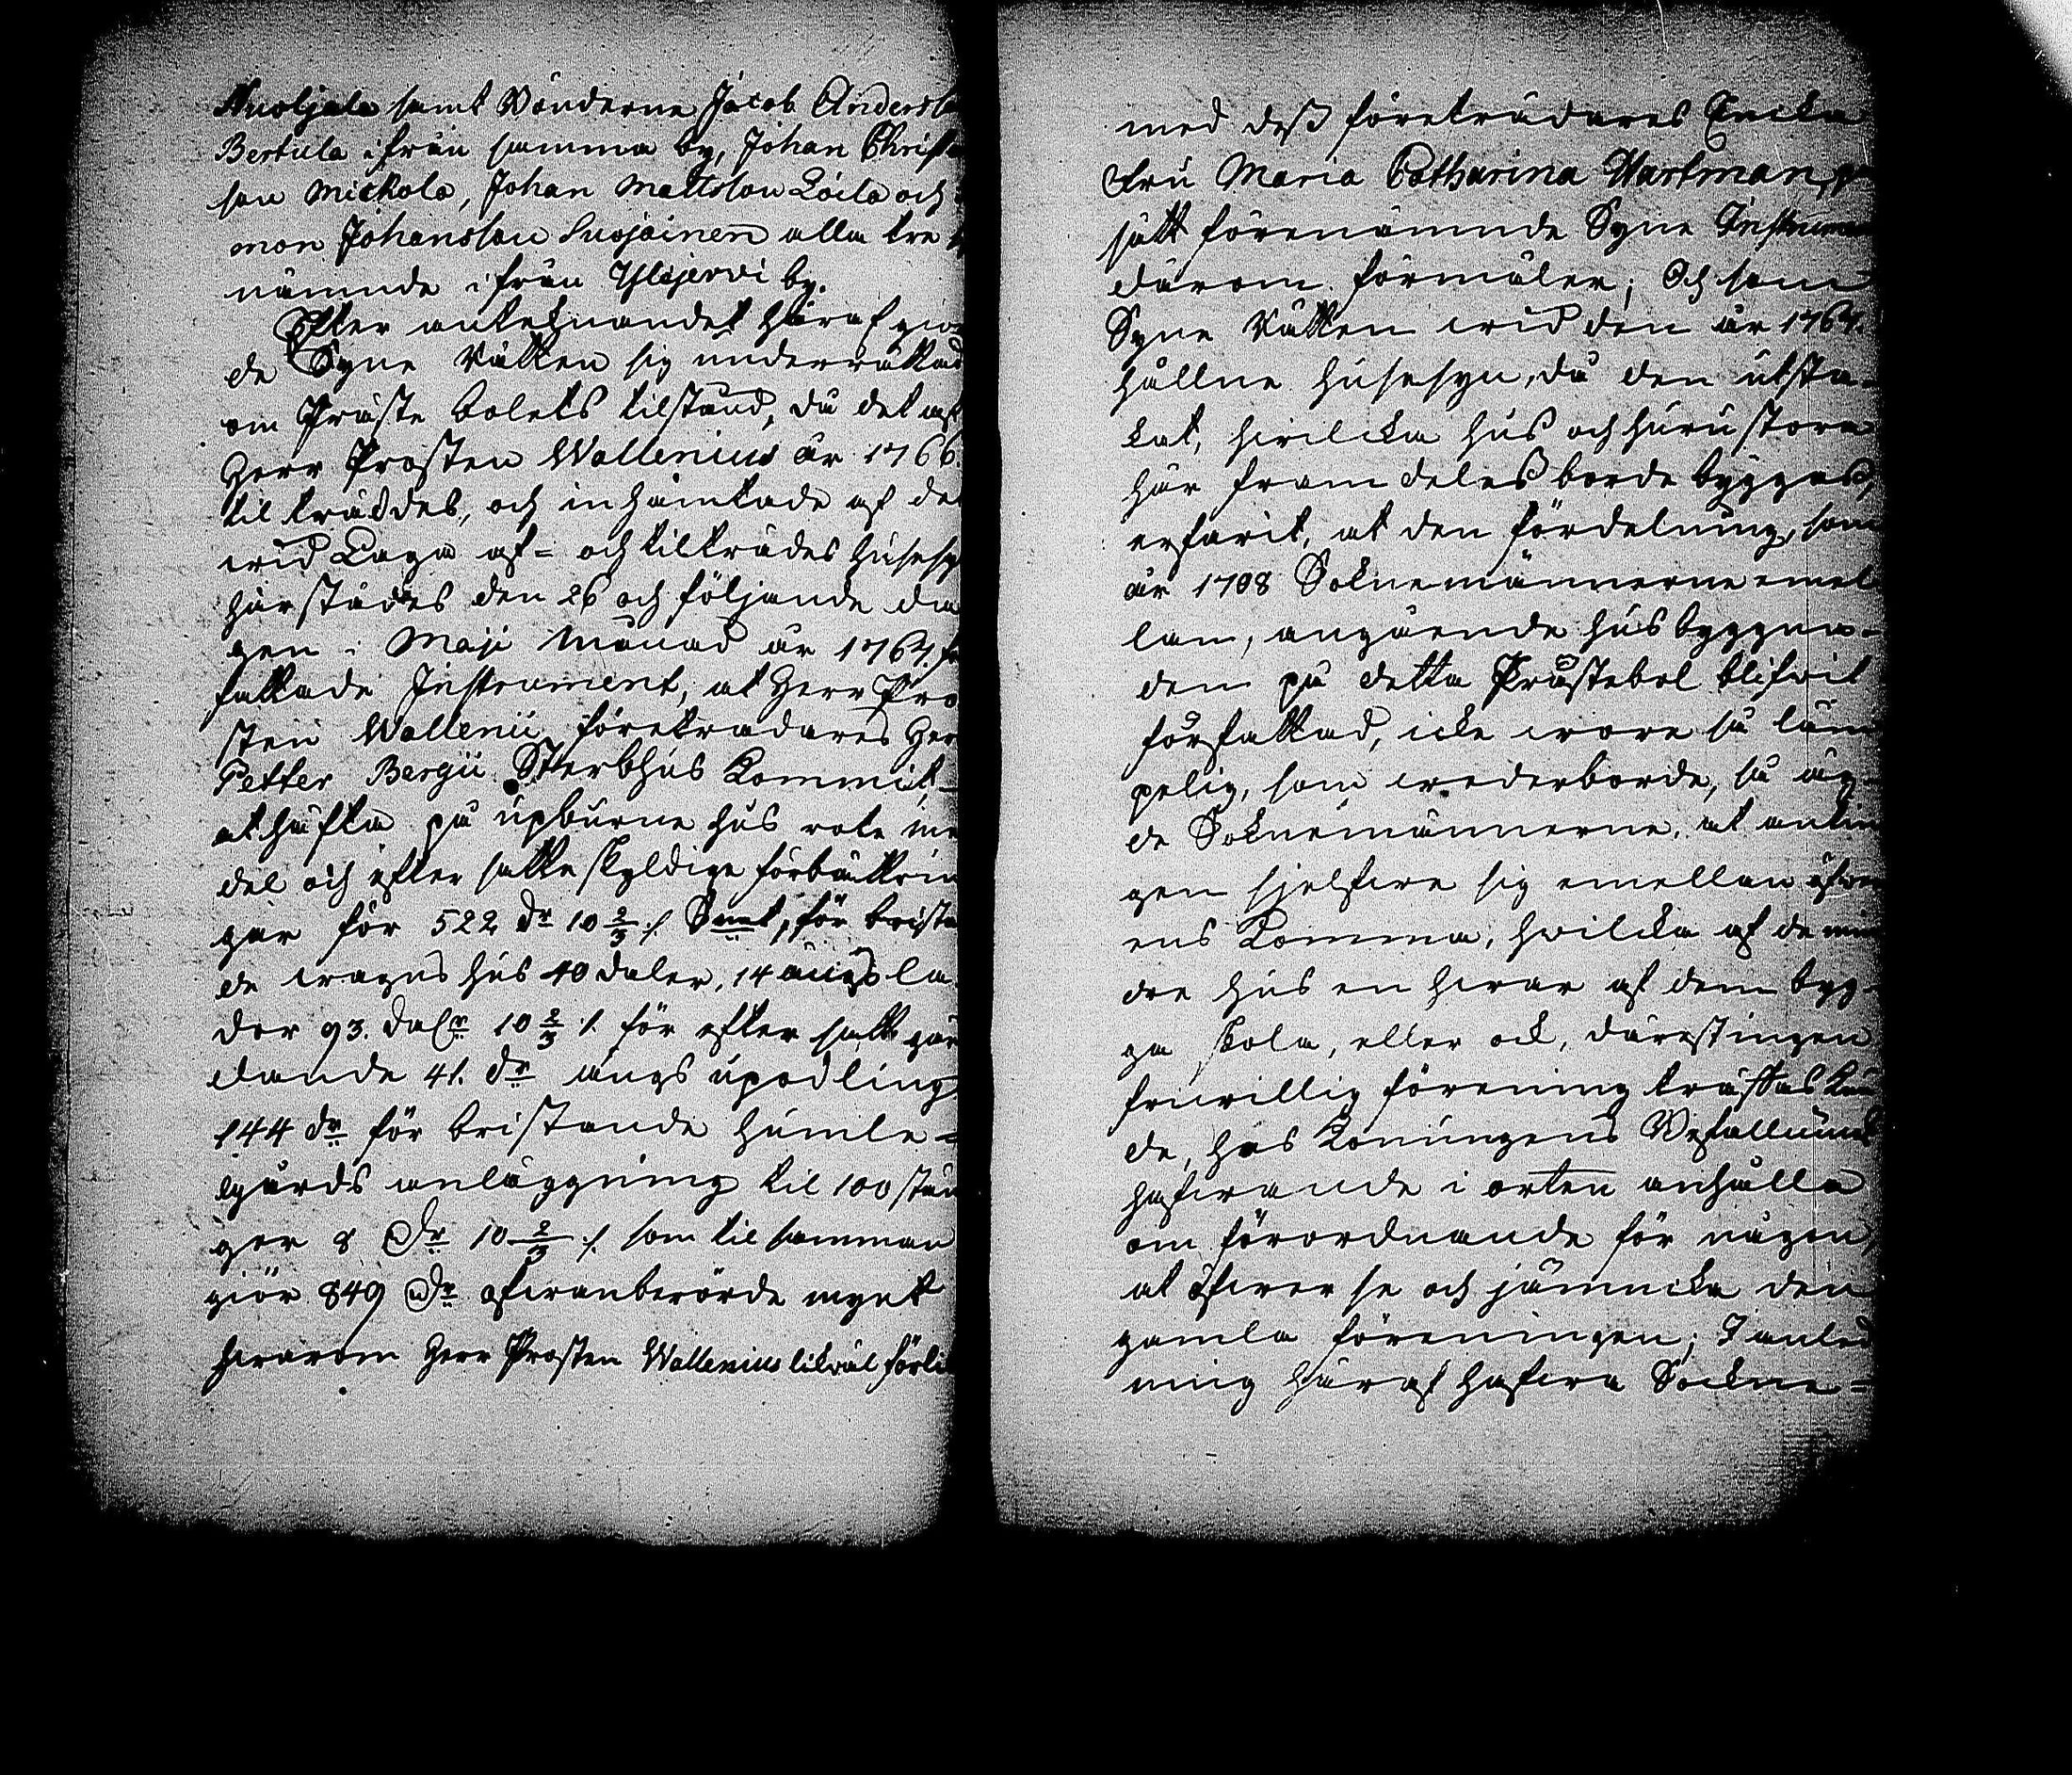 Nuoljala samt Bönderne Jacob Andersso
Bertula ifrån samma by, Johan Christ
son Mickola, Johan Mattsson Löila och
mon Johansson Suojainen alla tre
nämnde ifrån Ylisjervi by.
Efter antecknandet häraf gior
de Syne Rätten sig underrättad
om Präste bolets tilstånd, då det af
Herr Prosten Wallenius år 1766.
til träddes, och inhämtade af det
wid Laga af- och tilträdes husesy
härstädes den 26 och följande da
gen i Maji Månad år 1767, för
fattade Instrument, at Herr Pro
sten Wallenii företrädares Herr
Petter Bergii Sterbhus kommit
at häfta på upburne hus rote me
del och efter satte skyldige förbättrin
gar för 522 dr 10 2/3 /. Smt, för brista
de wagns hus 40 daler, 14 ängs la
dor 93. dalr 10 2/3 /. för efter satt gär
dande 41. dr ängs upodling
144 dr för bristande humle-
gårds anläggning til 100 stän
ger 8 Dr 10 2/3 /. som til samman
giör 849 Dr ofwanberörde mynt
hwarom Herr Prosten Wallenius likwäl förli
med dess företrädares Enka
Fru Maria Catharina Wartman, på
sätt förenämnde Syne Instrument
därom förmäler; Och som
Syne Rätten wid den år 1767.
hållne husesyn, då den utsta-
kat, hwilcka hus och huru stora
här framdeles borde byggas,
erfarit, at den fördelning, som
år 1708 Soknemännerne emel
lan, angående husbyggna-
den på detta Prästebol blifwit
författad, icke wore så läm
pelig, som wederborde, så äg-
de Soknemännerne, at antin
gen sjelfwe sig emellan öfwer
ens komma, hwilcka af de min
dre hus en hwar af dem byg-
ga skola, eller ock, därest ingen
friwillig förening träffas kun
de, hos Konungens Befallnings
hafwande i orten anhålla
om förordnande för någon,
at öfwer se och jämncka den
gamla föreningen; I anled
ning häraf hafwa Sockne-